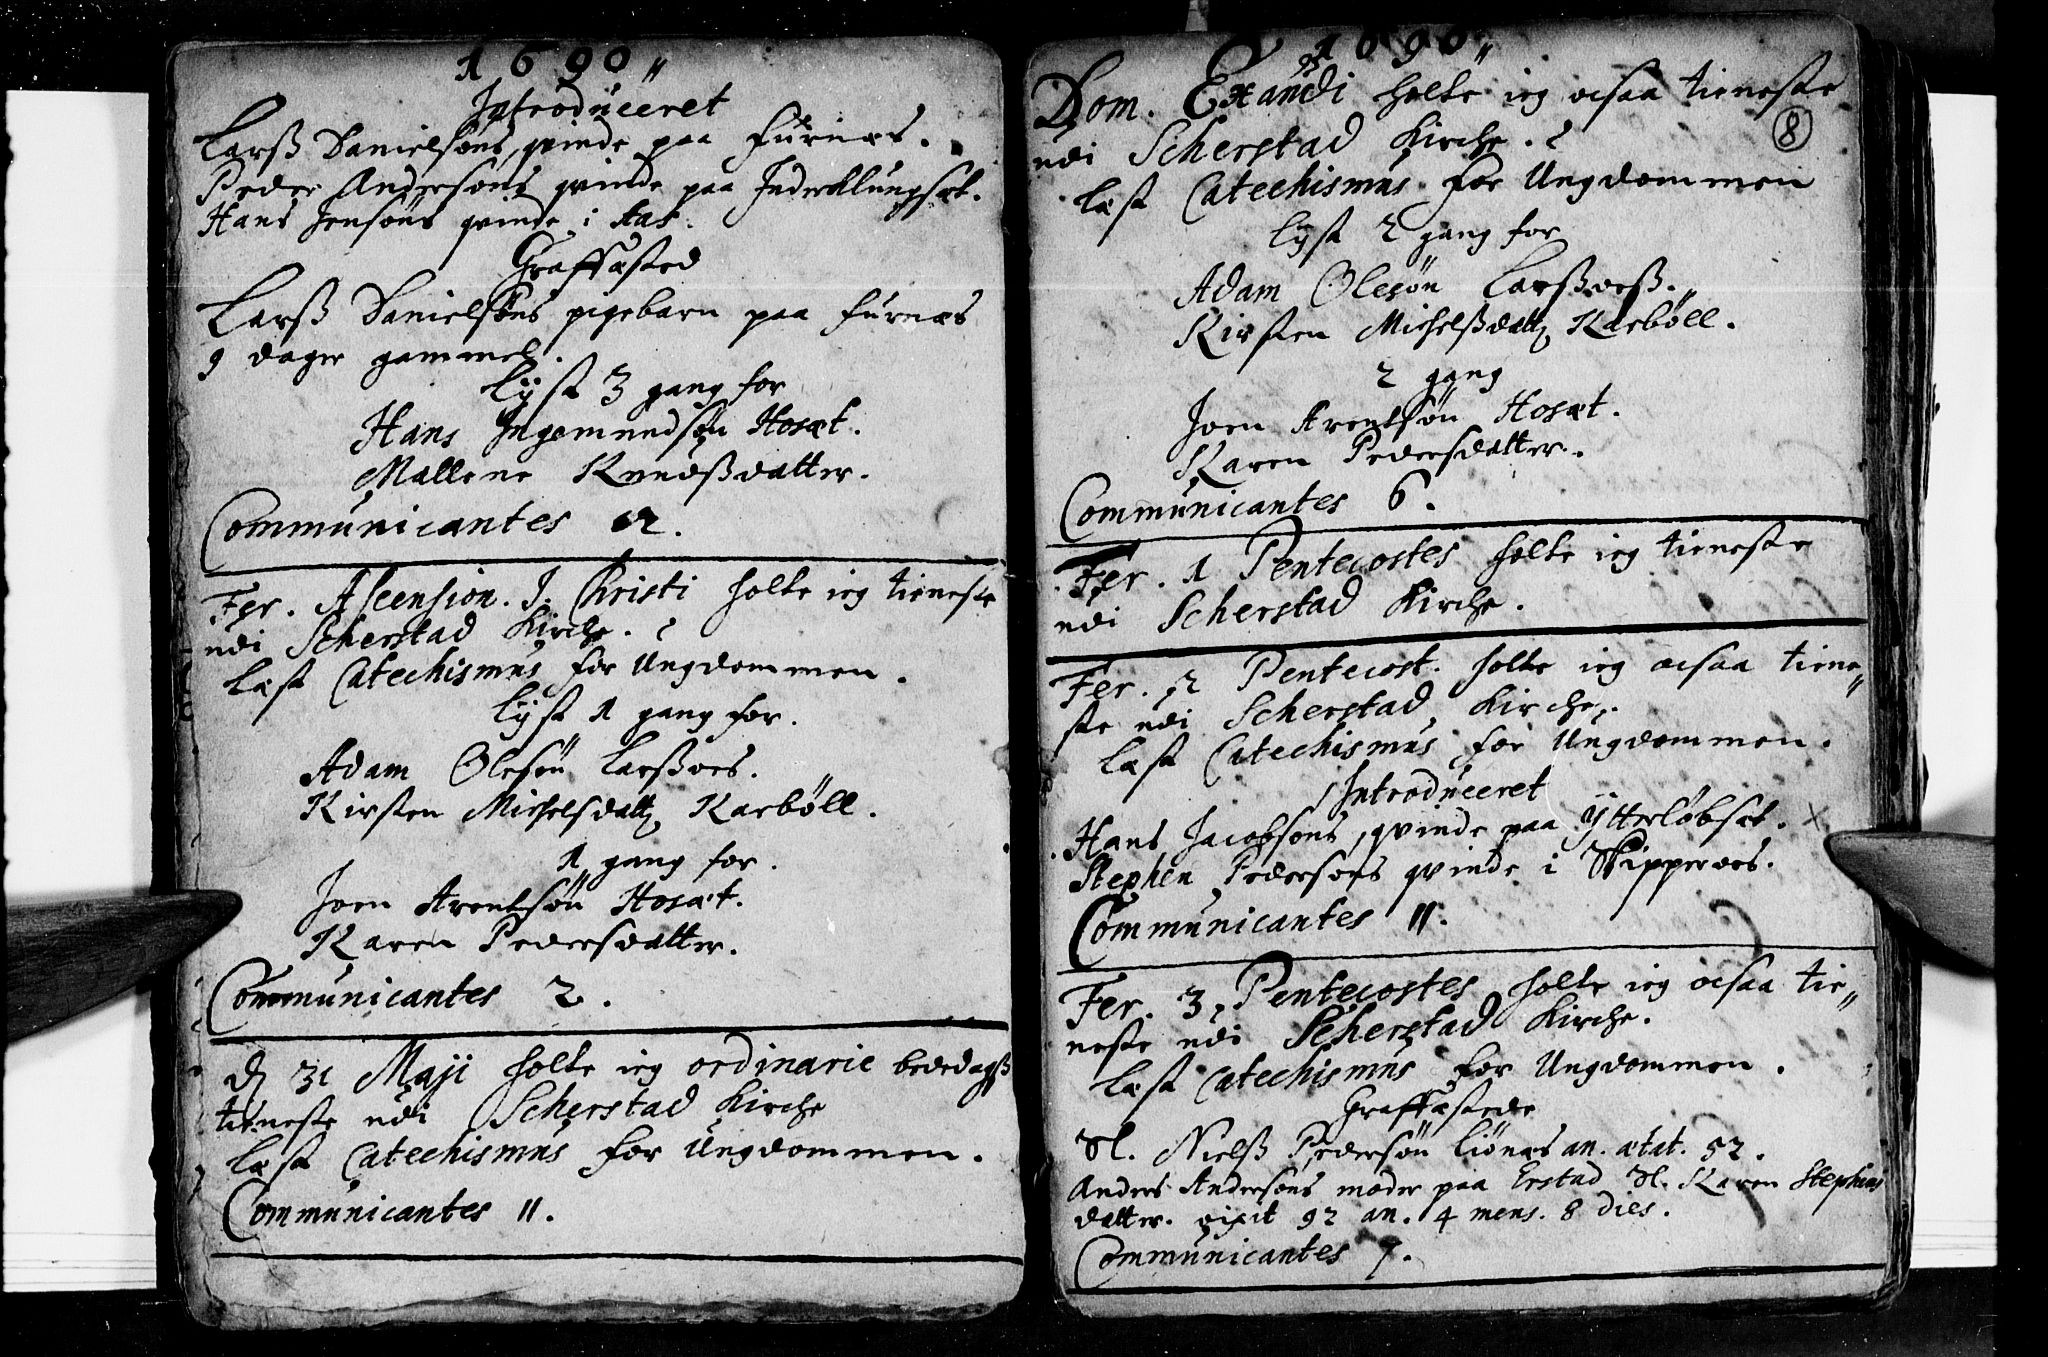 1690
Introduceret
Larß Danielsøns qvinde paa Furnæs.
Peder Andersøns qvinde paa Inderklungset.
Hans Jensøns qvinde i Aas.
Graffæsted
Larß Danielsøns pigebarn paa Furnæs
9 dager gammel.
Lyst 3 gang for
Hans Ingemundsøn Hosæt.
Mallene Knudßdatter.
Communicantes 12.
Fer. Ascension. J. Christi holte ieg tieneste
udi Scherstad Kirche.
Læst Catechismus for Ungdommen.
Lyst 1 gang for.
Adam Olesøn Larßvos.
Kirsten Michelsdatt Karbøll.
1 gang for.
Joen Arentsøn Hosæt.
Karen Pedersdatter.
Communicantes 2.
D 31 Maji holte ieg ordinarie bededagß
tieneste udi Scherstad Kirche
Læst Catechismus for Ungdommen.
Communicantes 11.
1690
8
Dom. Exaudi holte ieg ocsaa tieneste
udi Scherstad Kirche.
Læst Catechismus for Ungdommen
Lyst 2 gang for
Adam Olesøn Larßvoß.
Kirsten Michelßdatt Karbøll.
2 gang
Joen Arentsøn Hosæt.
Karen Pedersdatter.
Communicantes 6.
Fer. 1 Pentecostes holte ieg tieneste
udi Scherstad Kirche.
Fer. 2 Pentecost. holte ieg ocsaa tiene„
ste udi Scherstad Kirche.
Læst Catechismus for Ungdommen.
Introduceret
Hans Jacobsøns qvinde paa Ytterløbset. x
Stephen Pedersøns qvinde i Skippervos.
Communicantes 11.
Fer. 3 Pentecostes holte ieg ocsaa tie„
neste udi Scherstad Kirche.
Læst Catechismus for Ungdommen.
Graffæstede
Sl. Nielß Pedersøn Liønæs an. ætat. 52.
Anders Andersøns moder paa Erstad Sl. Karen Stephens
datter. vixit 92 an. 4 mens. 8 dies.
Communicantes 7.